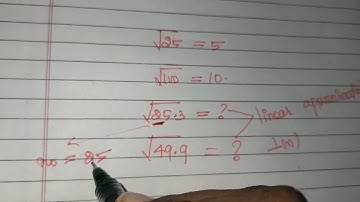 √25 = 5
√100 = 10.
√25.3 = ?
linear approximation
√49.9 = ?
L(x)
x₀ = 25